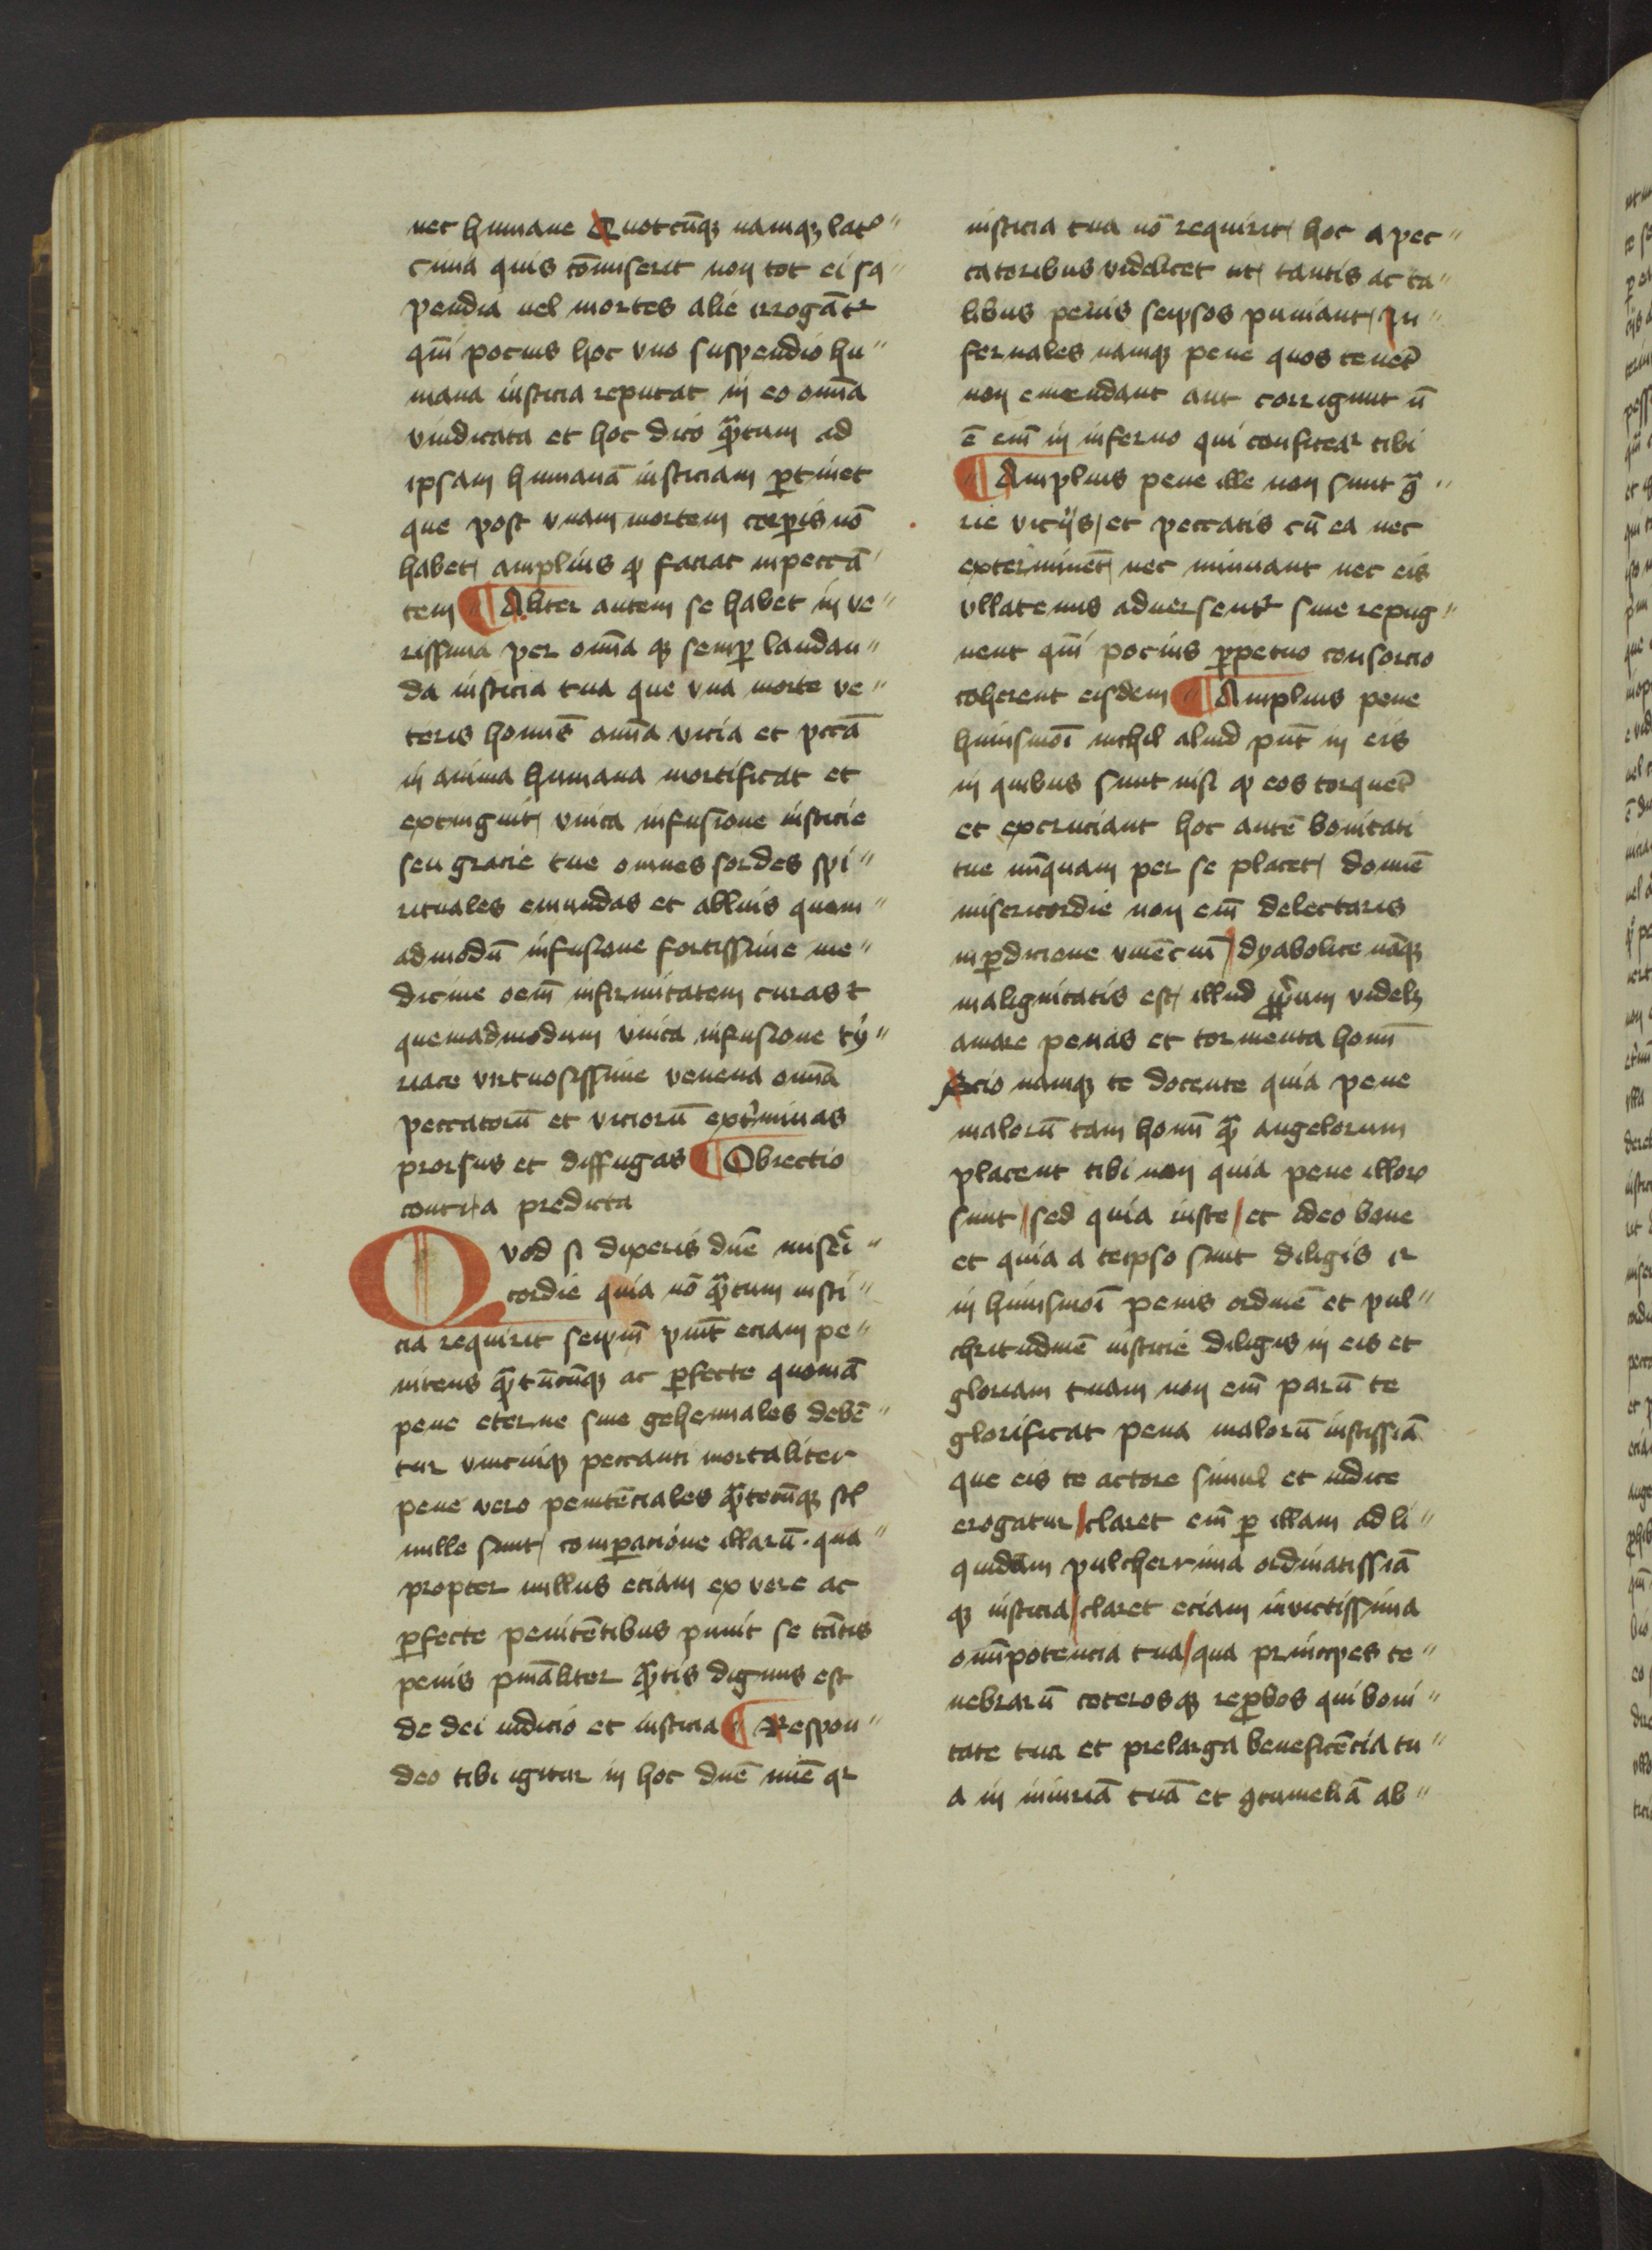 nec humane Quotcūqȝ namqȝ lat̾
cinia quis cōmiserit non tot ei sꝯ
pendia vel mortes alie irrogātr
qm̄i pocius hoc vno suspendio hu
mana iusticia reputat in eo om̄ia
vindicata et hoc dico qꝫtum ad
ipsam humanā iusticiam ꝑtinet
que post vnam mortem corꝑis nō
habet amplius qꝫ faciat in peccā
tem ¶ Aliter autem se habet in ve
rissima per om̄ia qȝ semꝑ laudan
da iusticia tua que vna morte ve
teris homīs om̄ia vicia et pctā
in anima humana mortificat et
extinguit vnica infusione iusticie
seu gracie tue omnes sordes spi
rituales emundas et abluis quem
admodū infusione fortissime me
dicine oem̄ infirmitatem curas et
quemadmodum vnica infusione ty
riace virtuosissime venena om̄ia
peccatorū et viciorū extīminas
prorsus et diffugas ¶ Obiectio
contra predicta
Quod si dixeris dn̄e miseri
cordie quia nō qꝫtum iusti
cia requirit seipm̄ punit eciam pe
nitens qꝫtūcūqȝ ac ꝑfecte quoniā
pene eterne siue gehennales debē
tur vnicuiqȝ peccanti mortaliter
pene vero penitēciales qꝫtecūqȝ sil
nulle sunt comparacione illarū qua
propter nullus eciam ex vere ac
ꝑfecte penitētibus punit se tātis
penis pniāliter qꝫtis dignus est
de dei iudicio et iusticia ¶ Respon
deo tibi igitur in hoc dn̄e mīe qr
iusticia tua nō requirit hoc a pec
catoribus videlicet ut tantis ac ta
libus penis seipsos puniant In
fernales namqȝ pene quos tenēt
non emendant aut corrigunt n̄
ē em̄ in inferno qui confitear tibi
¶ Amplius pene ille non sunt ꝯ̄
rie vicijs et peccatis cū ea nec
exterminēt nec minuant nec eis
vllatenus aduersentr siue repug
nent qm̄i pocius ꝑpetuo consorcio
coherent eisdem ¶ Amplius pene
huiusmōi nichil aliud pn̄t in eis
in quibus sunt nisi qꝫ eos torquēt
et excruciant hoc autē bonitati
tue nūquam per se placet domīe
misericordie non em̄ delectaris
in ꝑdicione viuēciū dyabolice nāqȝ
malignitatis est illud proprium videlȝ
amare penas et tormenta homī
Scio namqȝ te docente quia pene
malorū tam homī qꝫ angelorum
placent tibi non quia pene illorꝫ
sunt sed quia iuste et ideo bone
et quia a teipso sunt diligis et
in huiusmōi penis ordinē et pul
chritudinē iusticie diligis in eis et
gloriam tuam non em̄ parū te
glorificat pena malorū iustissiā
que eis te actore simul et iudice
erogatur claret em̄ ꝑ illam ad li
quidam pulcherrima ordinatissiā
qȝ iusticia claret eciam inuictissima
om̄ipotencia tua qua principes te
nebrarū ceterosqȝ reꝓbos qui boni
tate tua et prelarga beneficēcia tu
a in iniuriā tuā et ꝯtumeliā ab